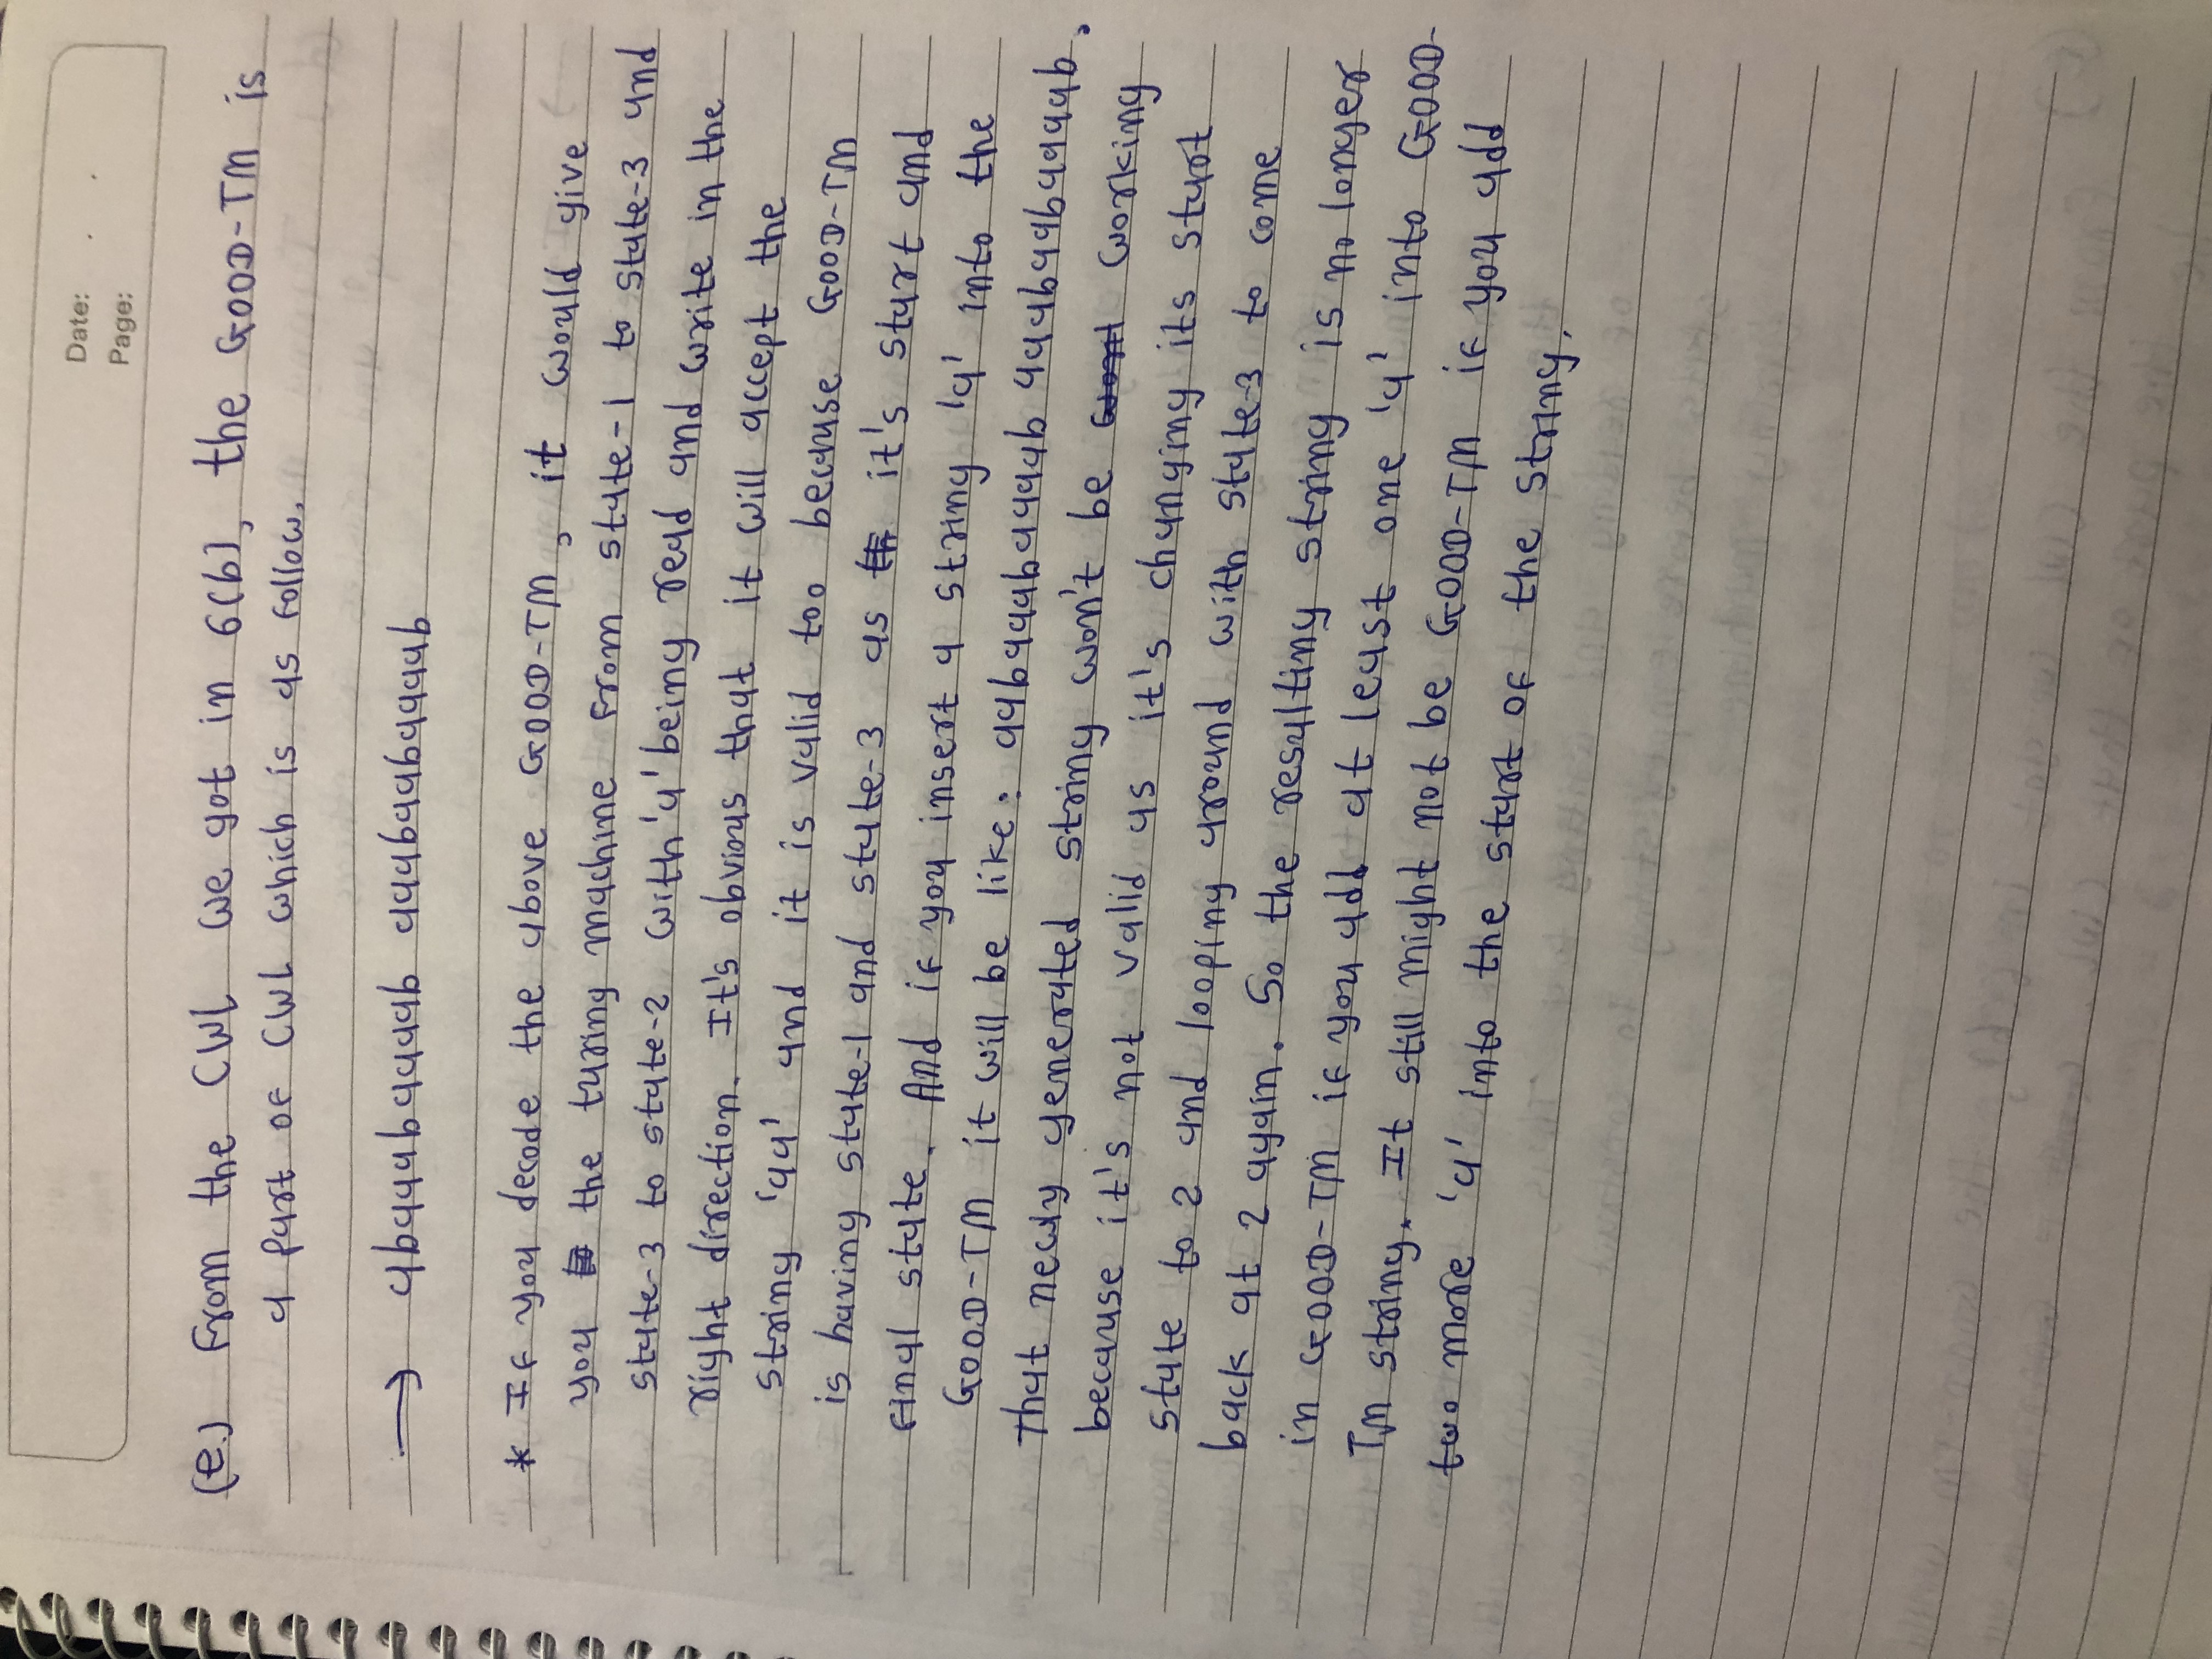 Date: . .
Page:
(e.) From the CWL we got in 6(b), the GOOD-TM is
a part of CWL which is as follow.
→ abaaabaaaab aaabaabaaaab
* If you decode the above GOOD-TM, it would give
you the turing machine from state-1 to state-3 and
state-3 to state-2 with 'a' being read and write in the
right direction. It's obvious that it will accept the
string 'aa' and it is valid too because GOOD-TM
is having state-1 and state-3 as it's start and
final state. And if you insert a string 'a' into the
GOOD-TM it will be like: aabaaabaaaab aaabaabaaaab.
That newly generated string won't be working
because it's not valid as it's changing its start
state to 2 and looping around with state-3 to come
back at 2 again. So the resulting string is no longer
in GOOD-TM if you add at least one 'a' into GOOD-
TM string. It still might not be GOOD-TM if you add
two more 'a' into the start of the string.